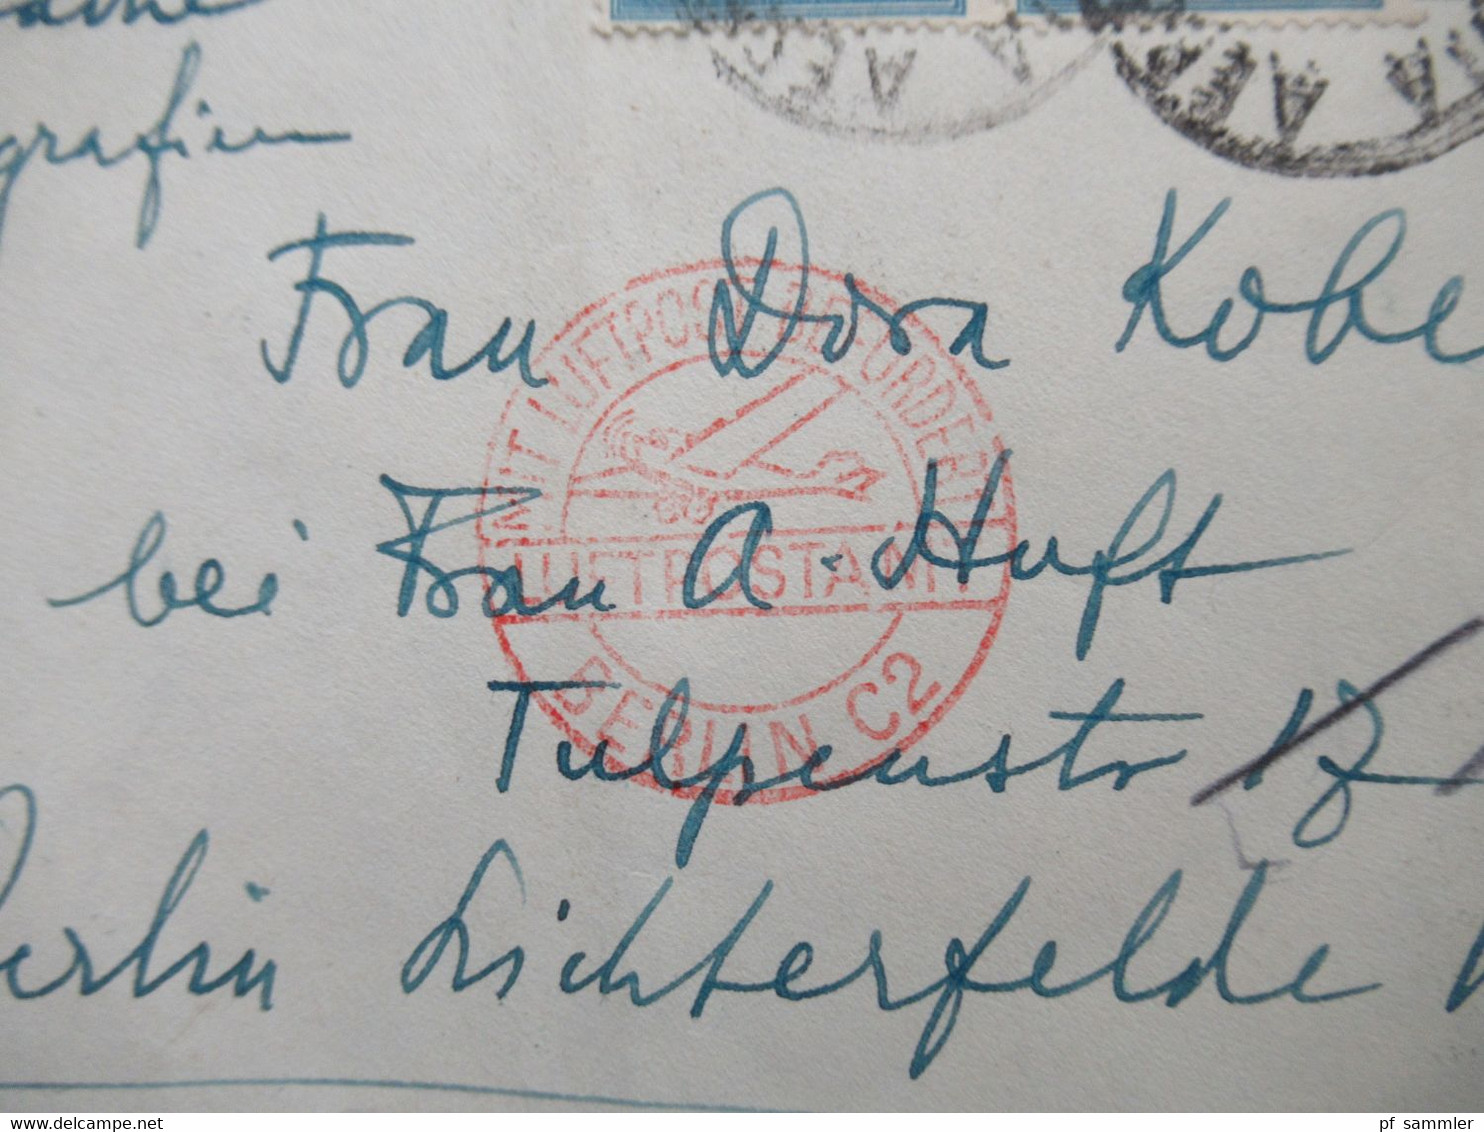 grafien
Frau Dora Kobe
bei Frau A. Huft
Tulpenstr 13
Berlin Lichterfelde
MIT LUFTPOST BEFÖRDERT
LUFTPOSTAMT
BERLIN C2
pf_sammler_____